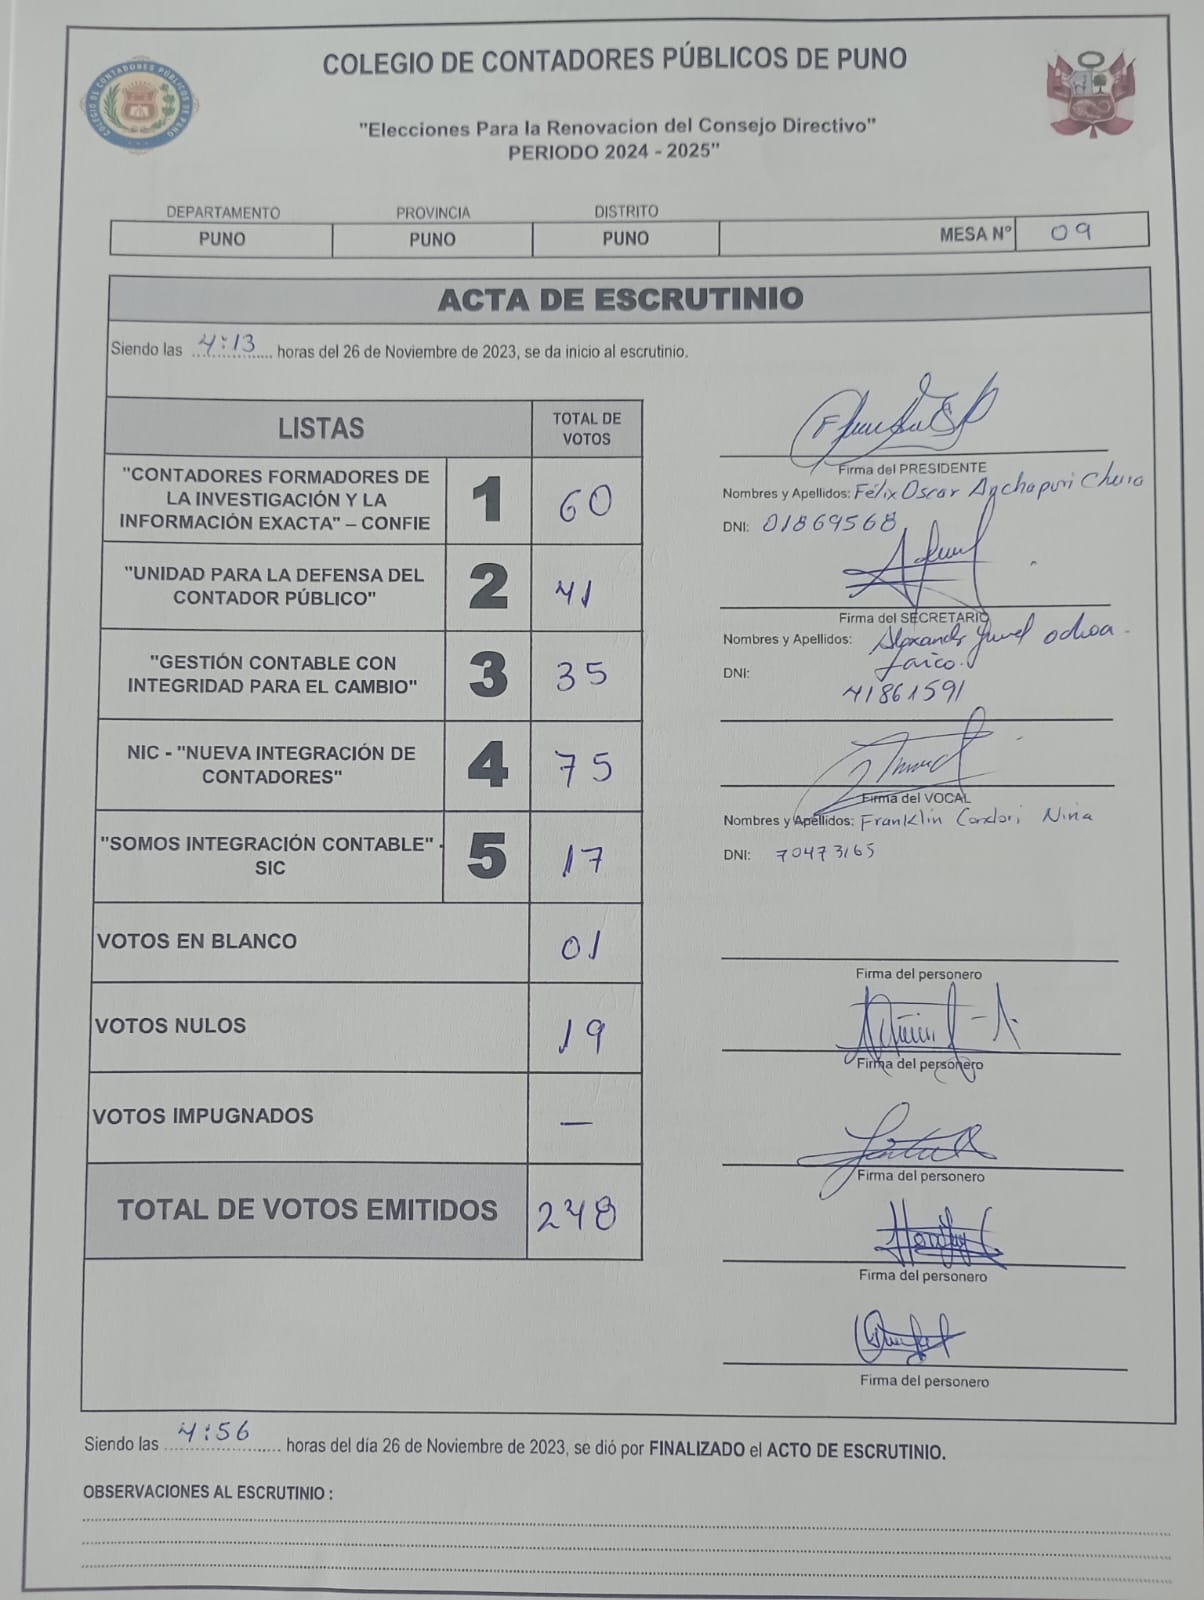 COLEGIO DE CONTADORES PÚBLICOS DE PUNO
COLEGIO DE CONTADORES PÚBLICOS DE PUNO
"Elecciones Para la Renovacion del Consejo Directivo"
PERIODO 2024 - 2025"
DEPARTAMENTO PROVINCIA DISTRITO
PUNO PUNO PUNO MESA N° 09
ACTA DE ESCRUTINIO
Siendo las 4:13 horas del 26 de Noviembre de 2023, se da inicio al escrutinio.
LISTAS TOTAL DE VOTOS
"CONTADORES FORMADORES DE
LA INVESTIGACIÓN Y LA
INFORMACIÓN EXACTA" – CONFIE 1 60
"UNIDAD PARA LA DEFENSA DEL
CONTADOR PÚBLICO" 2 41
"GESTIÓN CONTABLE CON
INTEGRIDAD PARA EL CAMBIO" 3 35
NIC - "NUEVA INTEGRACIÓN DE
CONTADORES" 4 75
"SOMOS INTEGRACIÓN CONTABLE" -
SIC 5 17
VOTOS EN BLANCO 01
VOTOS NULOS 19
VOTOS IMPUGNADOS —
TOTAL DE VOTOS EMITIDOS 248
Firma del PRESIDENTE
Nombres y Apellidos: Félix Oscar Anchapuri Chura
DNI: 01869568
Firma del SECRETARIO
Nombres y Apellidos: Ochoa
DNI:
41861591
Firma del VOCAL
Nombres y Apellidos: Franklin Condori Nina
DNI: 70473165
Firma del personero
Firma del personero
Firma del personero
Firma del personero
Firma del personero
Siendo las 4:56 horas del día 26 de Noviembre de 2023, se dió por FINALIZADO el ACTO DE ESCRUTINIO.
OBSERVACIONES AL ESCRUTINIO :